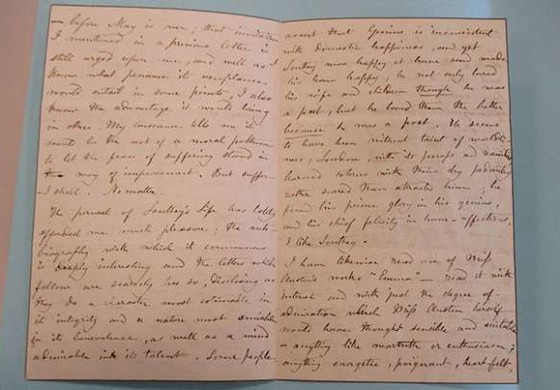 — before May is over; that invitation
I mentioned in a previous letter is
still urged upon me, and well as I
know what penance its acceptance
would entail in some points, I also
know the advantage it would bring
in others. My conscience tells me it
would be the act of a moral poltroon
to let the fear of suffering stand in
the way of improvement. But suffer
I shall. No matter.
The perusal of Southey's Life has lately
afforded me much pleasure; the auto-
biography with which it commences
is deeply interesting and the letters which
follow are scarcely less so, disclosing as
they do a character most estimable in
its integrity and a nature most amiable
in its benevolence, as well as a mind
admirable in its talent. Some people
assert that Genius is inconsistent
with domestic happiness, and yet
Southey was happy at home and made
his home happy; he not only loved
his wife and children though he was
a poet, but he loved them the better
because he was a poet. He seems
to have been without taint of worldli-
ness; London, with its pomps and vanities,
learned coteries with their dry pedantry
rather scared than attracted him; he
found his prime glory in his genius,
and his chief felicity in home-affections.
I like Southey.
I have likewise read one of Miss
Austen's works "Emma" — read it with
interest and with just the degree of
admiration which Miss Austen herself
would have thought sensible and suitable
— anything like warmth or enthusiasm;
anything energetic, poignant, heart-felt,